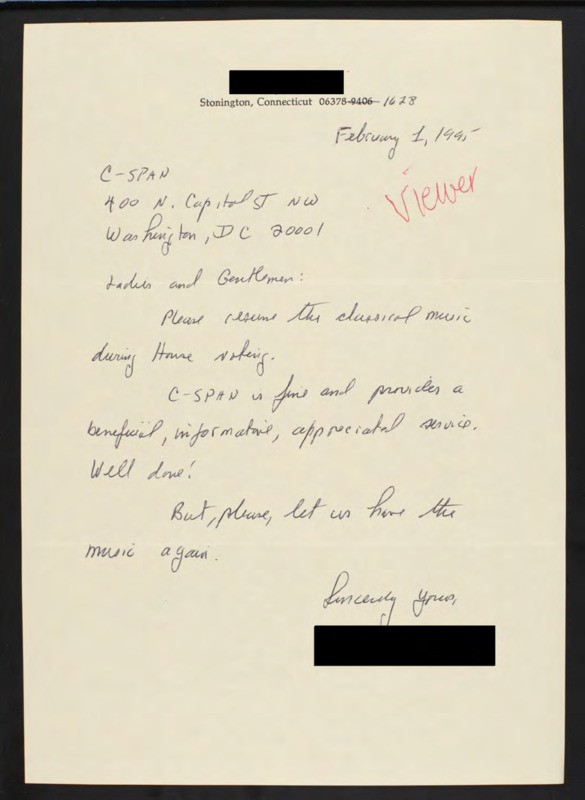 Stonington, Connecticut 06378-9406 1628
February 1, 1995
C-SPAN
Viewer
400 N. Capitol St NW
Washington, DC 20001
Ladies and Gentlemen:
Please resume the classical music
during House voting.
C-SPAN is fine and provides a
beneficial, informative, appreciated service.
Well done!
But, please, let us have the
music again.
Sincerely yours,